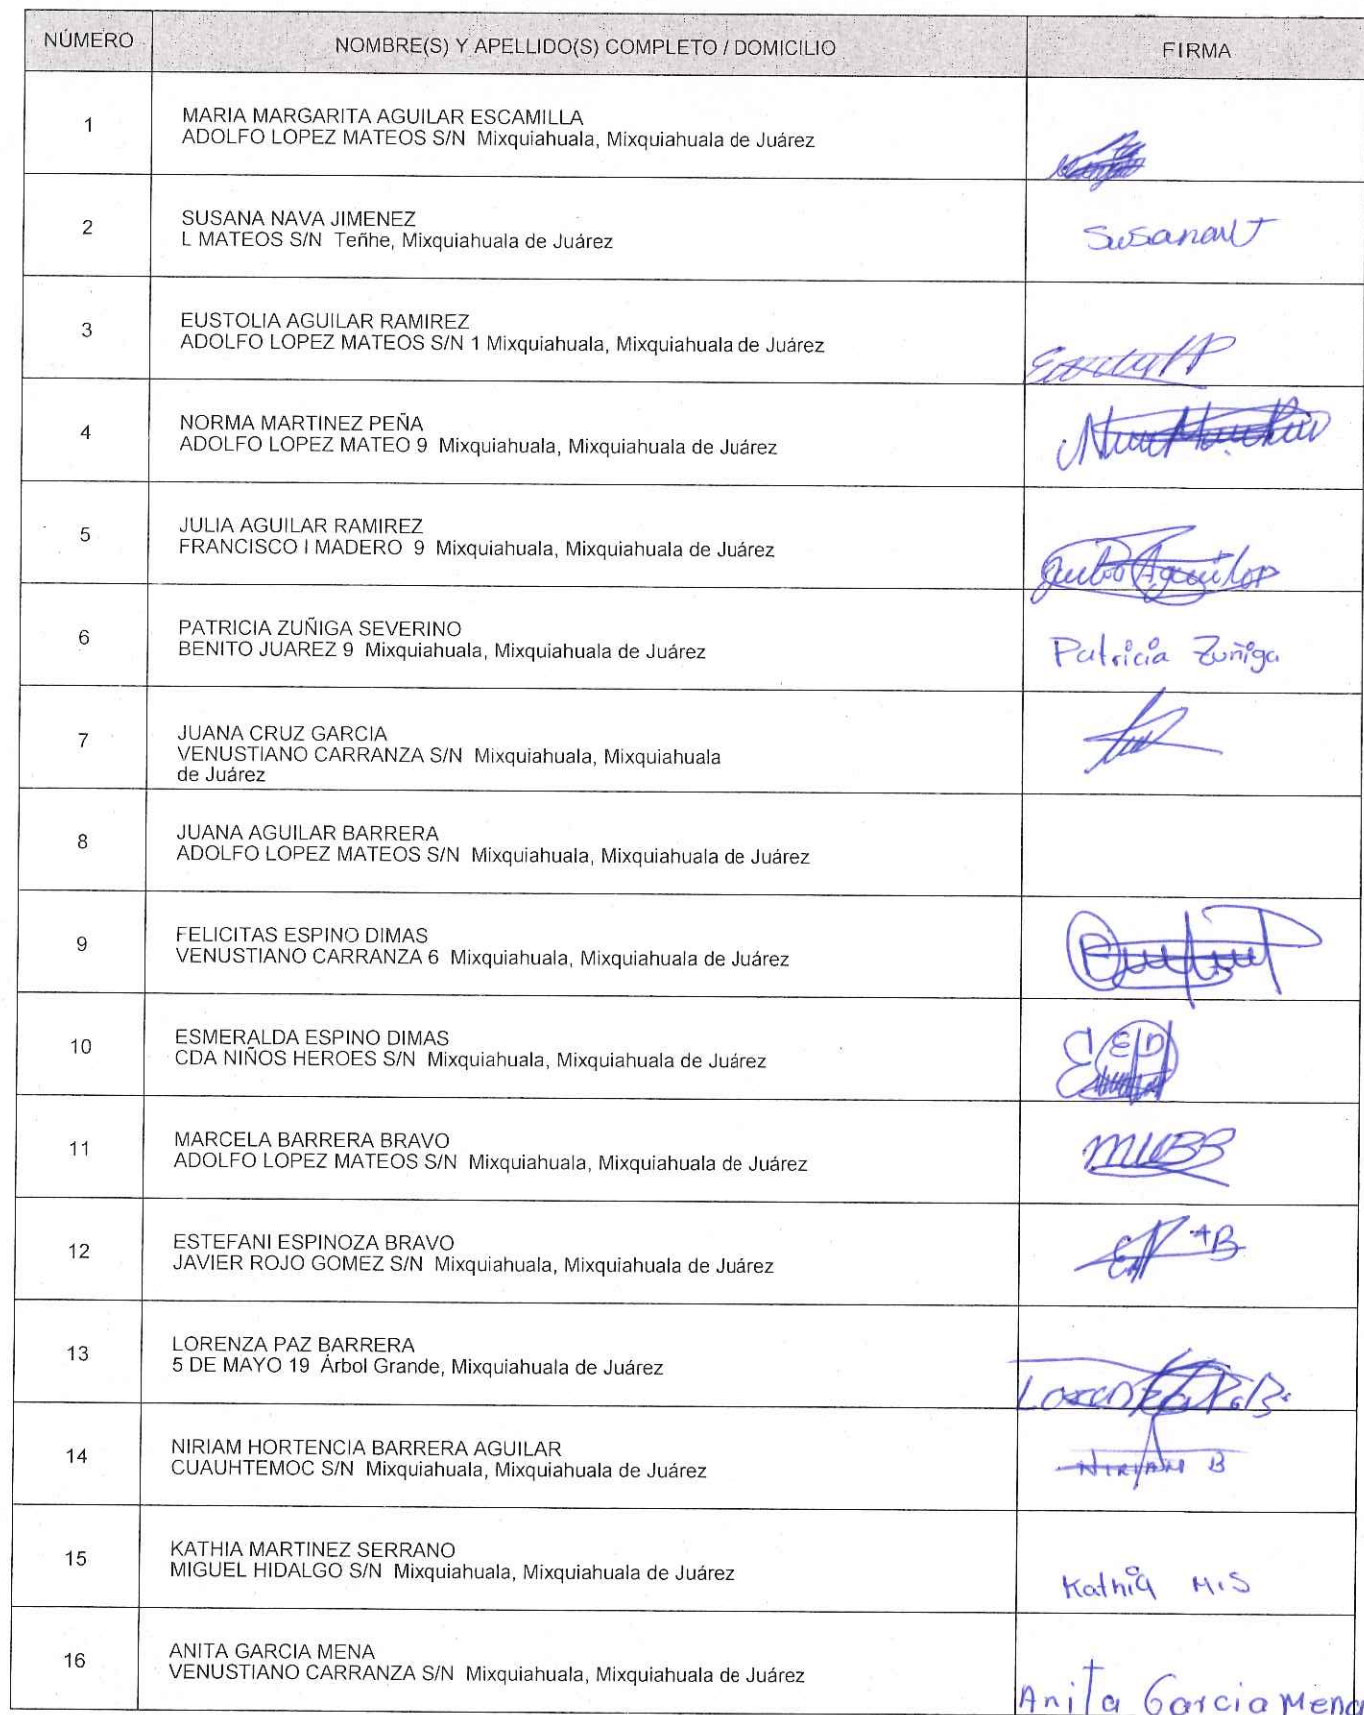 NÚMERO NOMBRE(S) Y APELLIDO(S) COMPLETO / DOMICILIO FIRMA
1 MARIA MARGARITA AGUILAR ESCAMILLA
ADOLFO LOPEZ MATEOS S/N Mixquiahuala, Mixquiahuala de Juárez
2 SUSANA NAVA JIMENEZ
L MATEOS S/N Teñhe, Mixquiahuala de Juárez
SusanaNJ
3 EUSTOLIA AGUILAR RAMIREZ
ADOLFO LOPEZ MATEOS S/N 1 Mixquiahuala, Mixquiahuala de Juárez
4 NORMA MARTINEZ PEÑA
ADOLFO LOPEZ MATEO 9 Mixquiahuala, Mixquiahuala de Juárez
5 JULIA AGUILAR RAMIREZ
FRANCISCO I MADERO 9 Mixquiahuala, Mixquiahuala de Juárez
Julia Aguilar
6 PATRICIA ZUÑIGA SEVERINO
BENITO JUAREZ 9 Mixquiahuala, Mixquiahuala de Juárez
Patricia Zuñiga
7 JUANA CRUZ GARCIA
VENUSTIANO CARRANZA S/N Mixquiahuala, Mixquiahuala
de Juárez
8 JUANA AGUILAR BARRERA
ADOLFO LOPEZ MATEOS S/N Mixquiahuala, Mixquiahuala de Juárez
9 FELICITAS ESPINO DIMAS
VENUSTIANO CARRANZA 6 Mixquiahuala, Mixquiahuala de Juárez
10 ESMERALDA ESPINO DIMAS
CDA NIÑOS HEROES S/N Mixquiahuala, Mixquiahuala de Juárez
11 MARCELA BARRERA BRAVO
ADOLFO LOPEZ MATEOS S/N Mixquiahuala, Mixquiahuala de Juárez
12 ESTEFANI ESPINOZA BRAVO
JAVIER ROJO GOMEZ S/N Mixquiahuala, Mixquiahuala de Juárez
13 LORENZA PAZ BARRERA
5 DE MAYO 19 Árbol Grande, Mixquiahuala de Juárez
Lorenza P.B.
14 NIRIAM HORTENCIA BARRERA AGUILAR
CUAUHTEMOC S/N Mixquiahuala, Mixquiahuala de Juárez
NIRIAM B
15 KATHIA MARTINEZ SERRANO
MIGUEL HIDALGO S/N Mixquiahuala, Mixquiahuala de Juárez
Kathia M.S
16 ANITA GARCIA MENA
VENUSTIANO CARRANZA S/N Mixquiahuala, Mixquiahuala de Juárez
Anita Garcia Mena